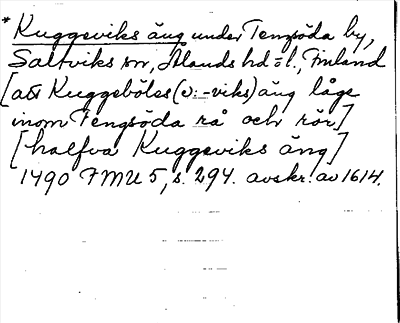 * Kuggeviks äng under Tengsöda by,
Saltviks sn, Ålands hd o l., Finland
[att Kuggeböles (ɔ: -viks) äng låge
inom Tengsöda rå och rör]
[halfva Kuggeviks äng]
1490 FMU 5, s. 294. avskr. av 1614.